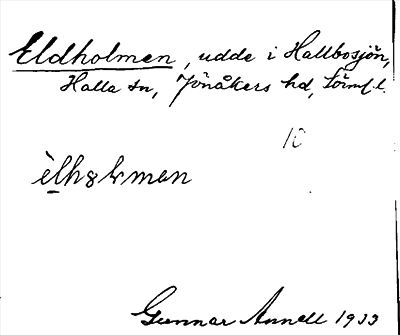 Eldholmen, udde i Hallbosjön,
Halla sn, Jönåkers hd, Sörml.
10
Gunnar Annell 1933